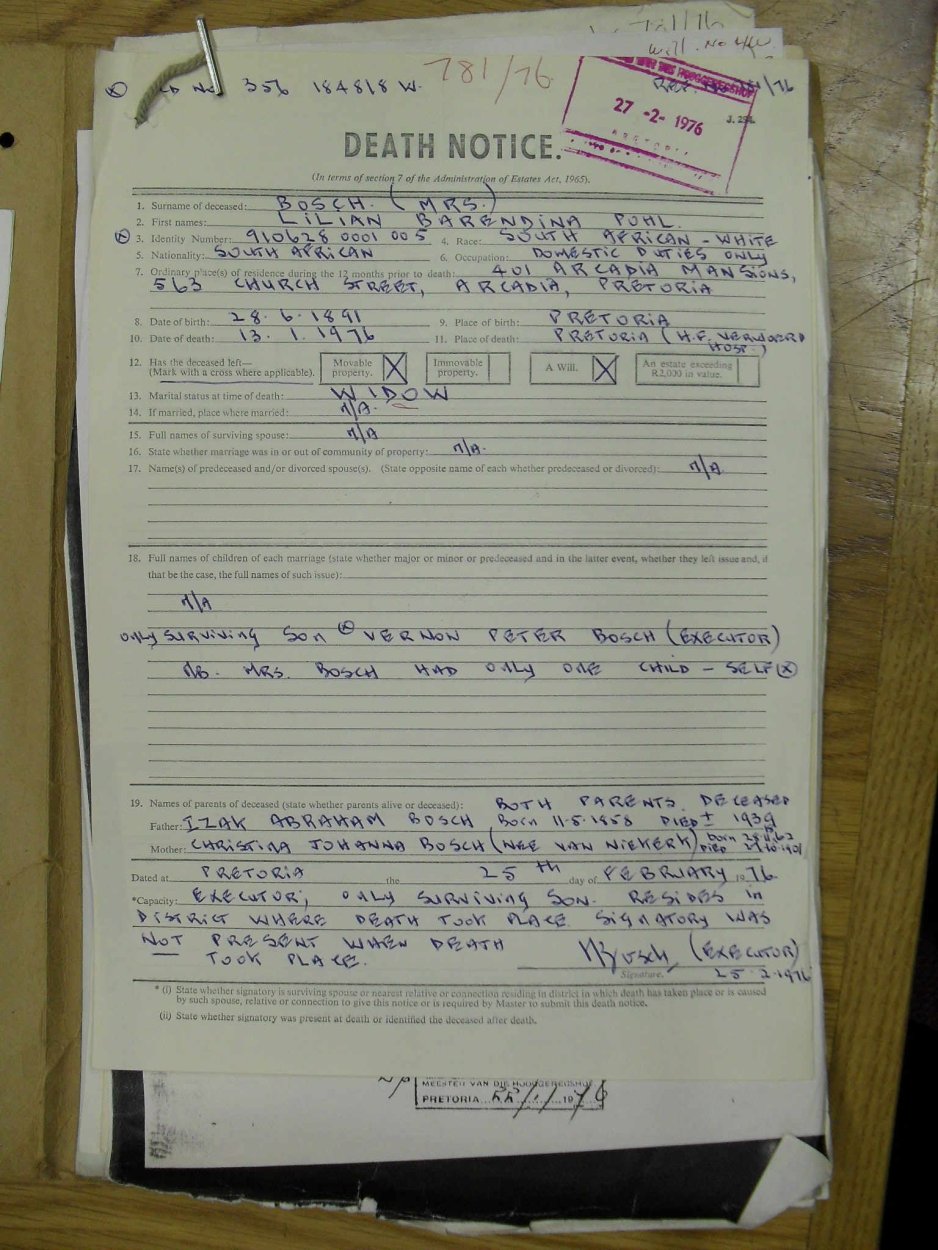 781/76
Will. No
ID No 356 184818 W.
781/76
/76
27 -2- 1976
PRETORIA
J. 294
DEATH NOTICE.
(In terms of section 7 of the Administration of Estates Act, 1965).
1. Surname of deceased: BOSCH. (MRS.)
2. First names: LILIAN BARENDINA POHL.
3. Identity Number: 910628 0001 005 4. Race: SOUTH AFRICAN - WHITE
5. Nationality: SOUTH AFRICAN 6. Occupation: DOMESTIC DUTIES ONLY
7. Ordinary place(s) of residence during the 12 months prior to death: 401 ARCADIA MANSIONS,
563 CHURCH STREET, ARCADIA, PRETORIA
8. Date of birth: 28.6.1891 9. Place of birth: PRETORIA
10. Date of death: 13.1.1976 11. Place of death: PRETORIA (H.F. VERWOERD
HOSP.)
12. Has the deceased left— Movable Immovable A Will. An estate exceeding
(Mark with a cross where applicable). property. X property. X R2,000 in value.
13. Marital status at time of death: WIDOW
14. If married, place where married: N/A.
15. Full names of surviving spouse: N/A
16. State whether marriage was in or out of community of property: N/A.
17. Name(s) of predeceased and/or divorced spouse(s). (State opposite name of each whether predeceased or divorced): N/A
18. Full names of children of each marriage (state whether major or minor or predeceased and in the latter event, whether they left issue and, if
that be the case, the full names of such issue):
N/A
ONLY SURVIVING SON VERNON PETER BOSCH (EXECUTOR)
NB. MRS. BOSCH HAD ONLY ONE CHILD - SELF
19. Names of parents of deceased (state whether parents alive or deceased): BOTH PARENTS DECEASED
Father: IZAK ABRAHAM BOSCH Born 11-5-1858 DIED ± 1939
Mother: CHRISTINA JOHANNA BOSCH (NEE VAN NIEKERK) born
DIED
Dated at PRETORIA the 25th day of FEBRUARY 1976
*Capacity: EXECUTOR, ONLY SURVIVING SON. RESIDES IN
DISTRICT WHERE DEATH TOOK PLACE. SIGNATORY WAS
NOT PRESENT WHEN DEATH
TOOK PLACE. Bosch (EXECUTOR)
Signature. 25.2.1976
* (i) State whether signatory is surviving spouse or nearest relative or connection residing in district in which death has taken place or is caused
by such spouse, relative or connection to give this notice or is required by Master to submit this death notice.
(ii) State whether signatory was present at death or identified the deceased after death.
MEESTER VAN DIE HOOGGEREGSHOF
PRETORIA 1976